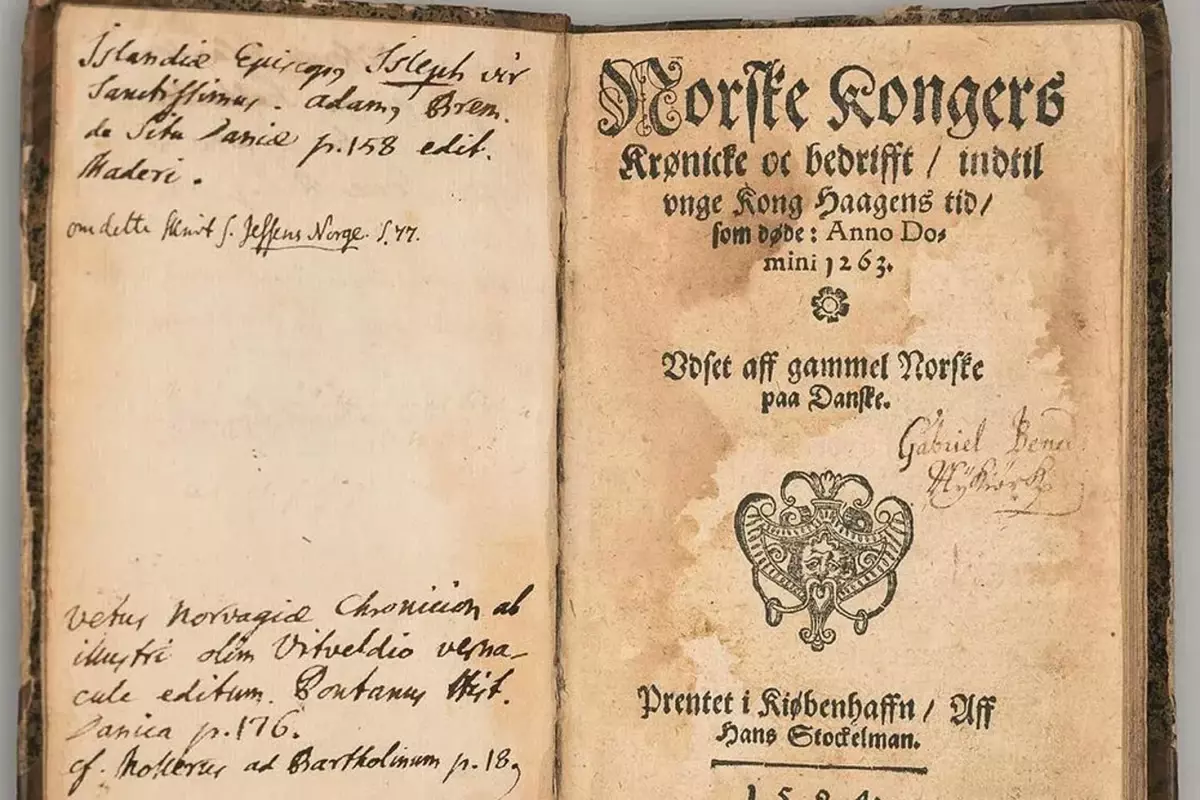 Islandiæ Episcopꝰ Isleph vir
Sanctissimus. adamꝰ Brem.
de Situ Daniæ p.158 edit.
Maderi.
om dette skrivt s. Jessens Norge. S.77.
vetus Norvagiæ Chronicion ab
illustri olim Vitveldio verna-
cule editum. Pontanus Hist.
Danica p.176.
cf. Mollerus ad Bartholinum p.18
Norske Kongers
Krønicke oc bedrifft / indtil
vnge Kong Haagens tid/
som døde: Anno Do-
mini 1263.
Vdset aff gammel Norske
paa Danske.
Gabriel
Prentet i Kiøbenhaffn / Aff
Hans Stockelman.